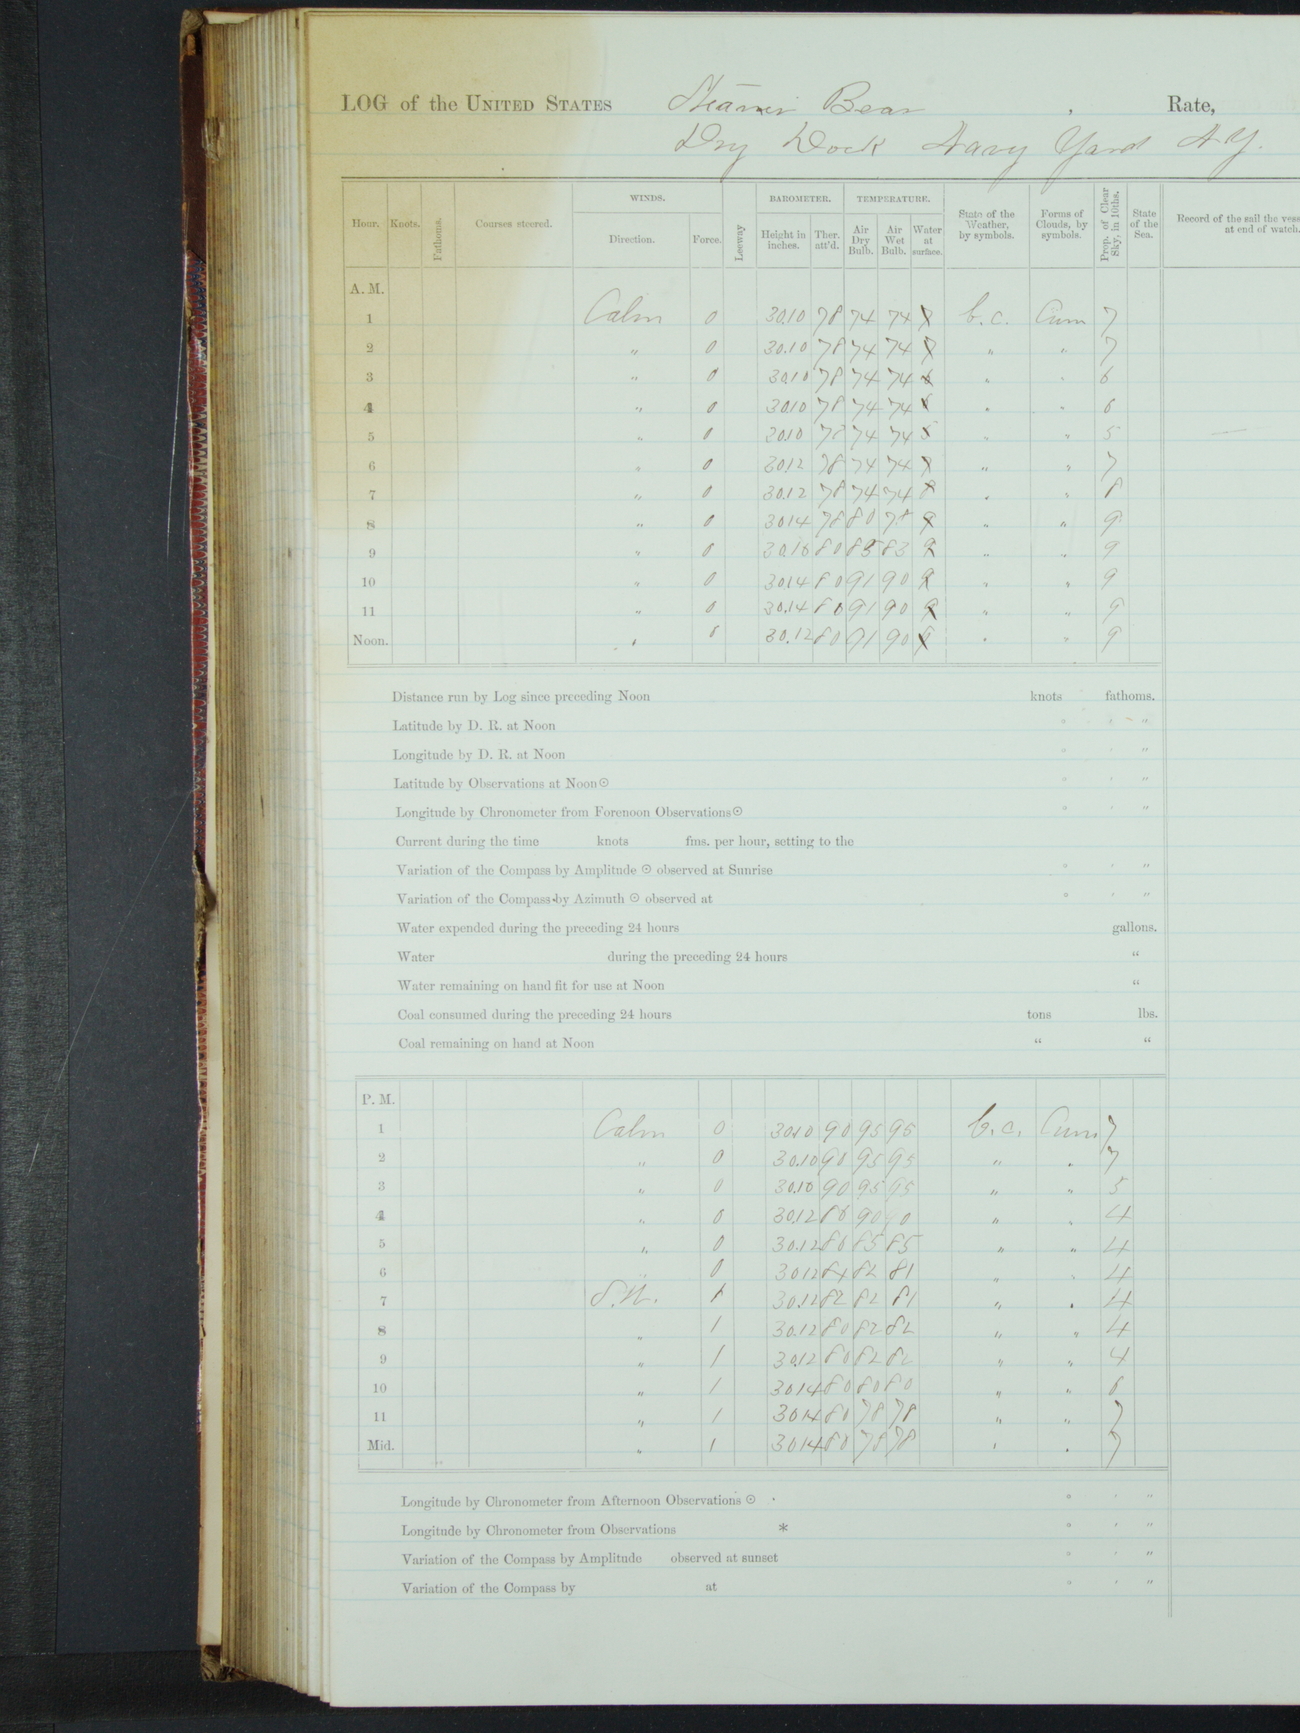 LOG of the UNITED STATES Steamer Bear , Rate,
Dry Dock Navy Yard N.Y.
Hour. Knots. Fathoms. Courses steered. WINDS. Direction. Force. Leeway BAROMETER. Height in inches. Ther. att'd. TEMPERATURE. Air Dry Bulb. Air Wet Bulb. Water at surface. State of the Weather, by symbols. Forms of Clouds, by symbols. Prop. of Clear Sky, in 10ths. State of the Sea. Record of the sail the vess at end of watch.
A. M.
1 Calm 0 30.10 78 74 74 7 b.c. Cum 7
2 " 0 30.10 78 74 74 7 " " 7
3 " 0 30.10 78 74 74 6 " " 6
4 " 0 30.10 78 74 74 6 " " 6
5 " 0 30.10 78 74 74 5 " " 5
6 " 0 30.12 78 74 74 7 " " 7
7 " 0 30.12 78 74 74 8 " " 8
8 " 0 30.14 78 80 78 9 " " 9
9 " 0 30.16 80 85 83 9 " " 9
10 " 0 30.14 80 91 90 9 " " 9
11 " 0 30.14 80 91 90 9 " " 9
Noon. " 0 30.12 80 91 90 9 " " 9
Distance run by Log since preceding Noon knots fathoms.
Latitude by D. R. at Noon ° ' "
Longitude by D. R. at Noon ° ' "
Latitude by Observations at Noon ☉ ° ' "
Longitude by Chronometer from Forenoon Observations ☉ ° ' "
Current during the time knots fms. per hour, setting to the
Variation of the Compass by Amplitude ☉ observed at Sunrise ° ' "
Variation of the Compass by Azimuth ☉ observed at ° ' "
Water expended during the preceding 24 hours gallons.
Water during the preceding 24 hours "
Water remaining on hand fit for use at Noon "
Coal consumed during the preceding 24 hours tons lbs.
Coal remaining on hand at Noon " "
P. M.
1 Calm 0 30.10 90 95 95 b.c. Cum 7
2 " 0 30.10 90 95 95 " " 7
3 " 0 30.10 90 95 95 " " 5
4 " 0 30.12 86 90 90 " " 4
5 " 0 30.12 86 85 85 " " 4
6 " 0 30.12 84 82 81 " " 4
7 S.W. 1 30.12 82 82 81 " " 4
8 " 1 30.12 80 82 82 " " 4
9 " 1 30.12 80 82 82 " " 4
10 " 1 30.14 80 80 80 " " 6
11 " 1 30.14 80 78 78 " " 7
Mid. " 1 30.14 80 78 78 " " 7
Longitude by Chronometer from Afternoon Observations ☉ ° ' "
Longitude by Chronometer from Observations * ° ' "
Variation of the Compass by Amplitude observed at sunset ° ' "
Variation of the Compass by at ° ' "